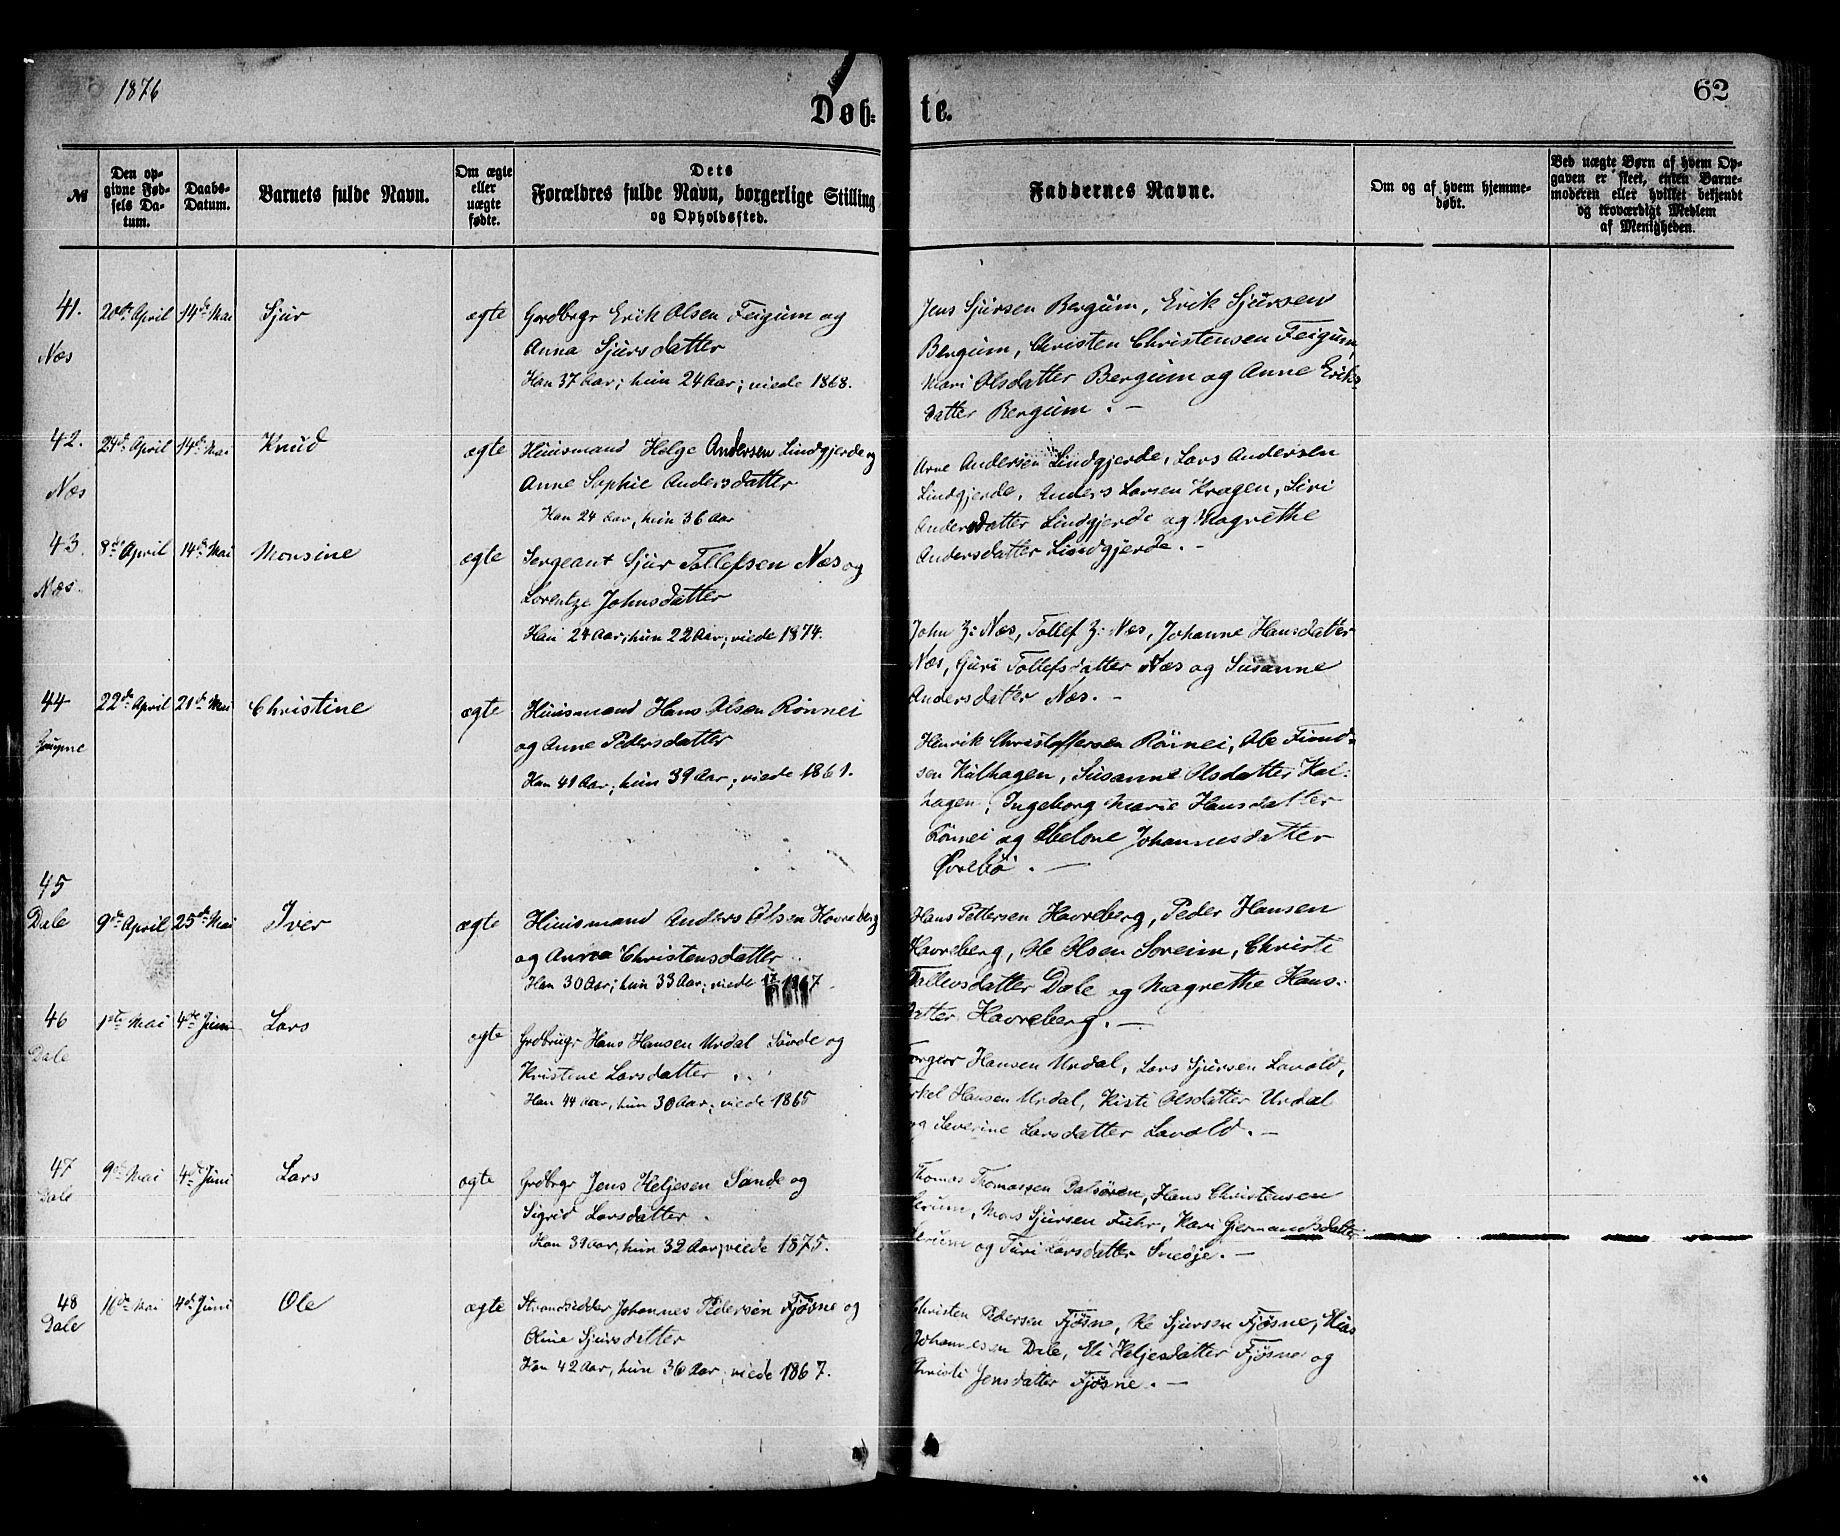 1876
62
Døb-te.
№
Den op-
givne Fød-
sels Da-
tum.
Daabs-
Datum.
Barnets fulde Navn.
Om ægte
eller
uægte
fødte.
Dets
Forældres fulde Navn, borgerlige Stilling
og Opholdssted.
Faddernes Navne.
Om og af hvem hjemme-
døbt.
Ved uægte Børn af hvem Op-
gaven er skeet, enten Barne-
moderen eller hvilket bekjendt
og troværdigt Medlem
af Menigheden.
41. 20de April 14de Mai Sjur ægte Gordbrgr Erik Olsen Feigum og
Næs
Anna Sjursdatter
Han 37 Aar; hun 24 Aar; viede 1868.
Jens Sjursen Bergum, Erik Sjursen
Bergum, Christen Christensen Feigum,
Kari Olsdatter Bergum og Anne Eriks-
datter Bergum. –
42. 24de April 14de Mai Knud ægte Huusmand Helge Andersen Lindgjerde og
Næs
Anne Sophie Andersdatter
Han 24 Aar, hun 36 Aar
Arne Andersen Lindgjerde, Lars Andersen
Lindgjerde, Anders Larsen Kragen, Siri
Andersdatter Lindgjerde og Magrethe
Andersdatter Lindgjerde. –
43. 8de April 14de Mai Monsine ægte Sergeant Sjur Tollefsen Næs og
Næs.
Lorentze Johnsdatter
Han 24 Aar; hun 22 Aar; viede 1874.
John J: Næs, Tollef J: Næs, Johanne Hansdatter
Næs, Guri Tollefsdatter Næs og Susanne
Andersdatter Næs. –
44 22de April 21de Mai Christine ægte Huusmand Hans Olsen Rönnei
Gaupne
og Anne Pedersdatter
Han 41 Aar; hun 39 Aar; viede 1861.
Henrik Christoffersen Rönnei, Ole Fiend-
sen Kulhagen, Susanne Olsdatter Kul-
hagen, Ingeborg Marie Hansdatter
Rönnei og Abelone Johannesdatter
Øvrebö. –
45
Dale 9de April 25de Mai Iver ægte Huusmand Anders Olsen Havreberg
og Anna Christensdatter
Han 30 Aar; hun 33 Aar; viede 1867
Hans Pettersen Havreberg, Peder Hansen
Havreberg, Ole Olsen Soreim, Christi
Tallevsdatter Dale og Magrethe Hans-
datter Havreberg. –
46 1ste Mai 4de Juni Lars ægte Grdbrugr Hans Hansen Urdal Sörde og
Dale
Kristine Larsdatter
Han 44 Aar, hun 30 Aar; viede 1865
Torgeir Hansen Urdal, Lars Sjursen Lavold,
Hansen Urdal, Kisti Olsdatter Urdal
og Severine Larsdatter Lavold. –
47 9de Mai 4de Juni Lars ægte Grdbrgr Jens Heljesen Sande og
Dale
Sigrid Larsdatter.
Han 39 Aar, hun 32 Aar; viede 1875.
Thomas Thomassen Dalsören, Hans Christensen
Mons Sjursen Fuhr, Kari Germandsdatter
og Turi Larsdatter Sneöje. –
48 16de Mai 4de Juni Ole ægte Strandsidder Johannes Pedersen Fjøsne og
Dale
Oline Sjursdatter
Han 42 Aar, hun 36 Aar; viede 1867.
Christen Pedersen Fjøsne, Ole Sjursen Fjøsne,
Johannesen Dale, Eli Heljesdatter Fjøsne og
Christi Jensdatter Fjøsne. –